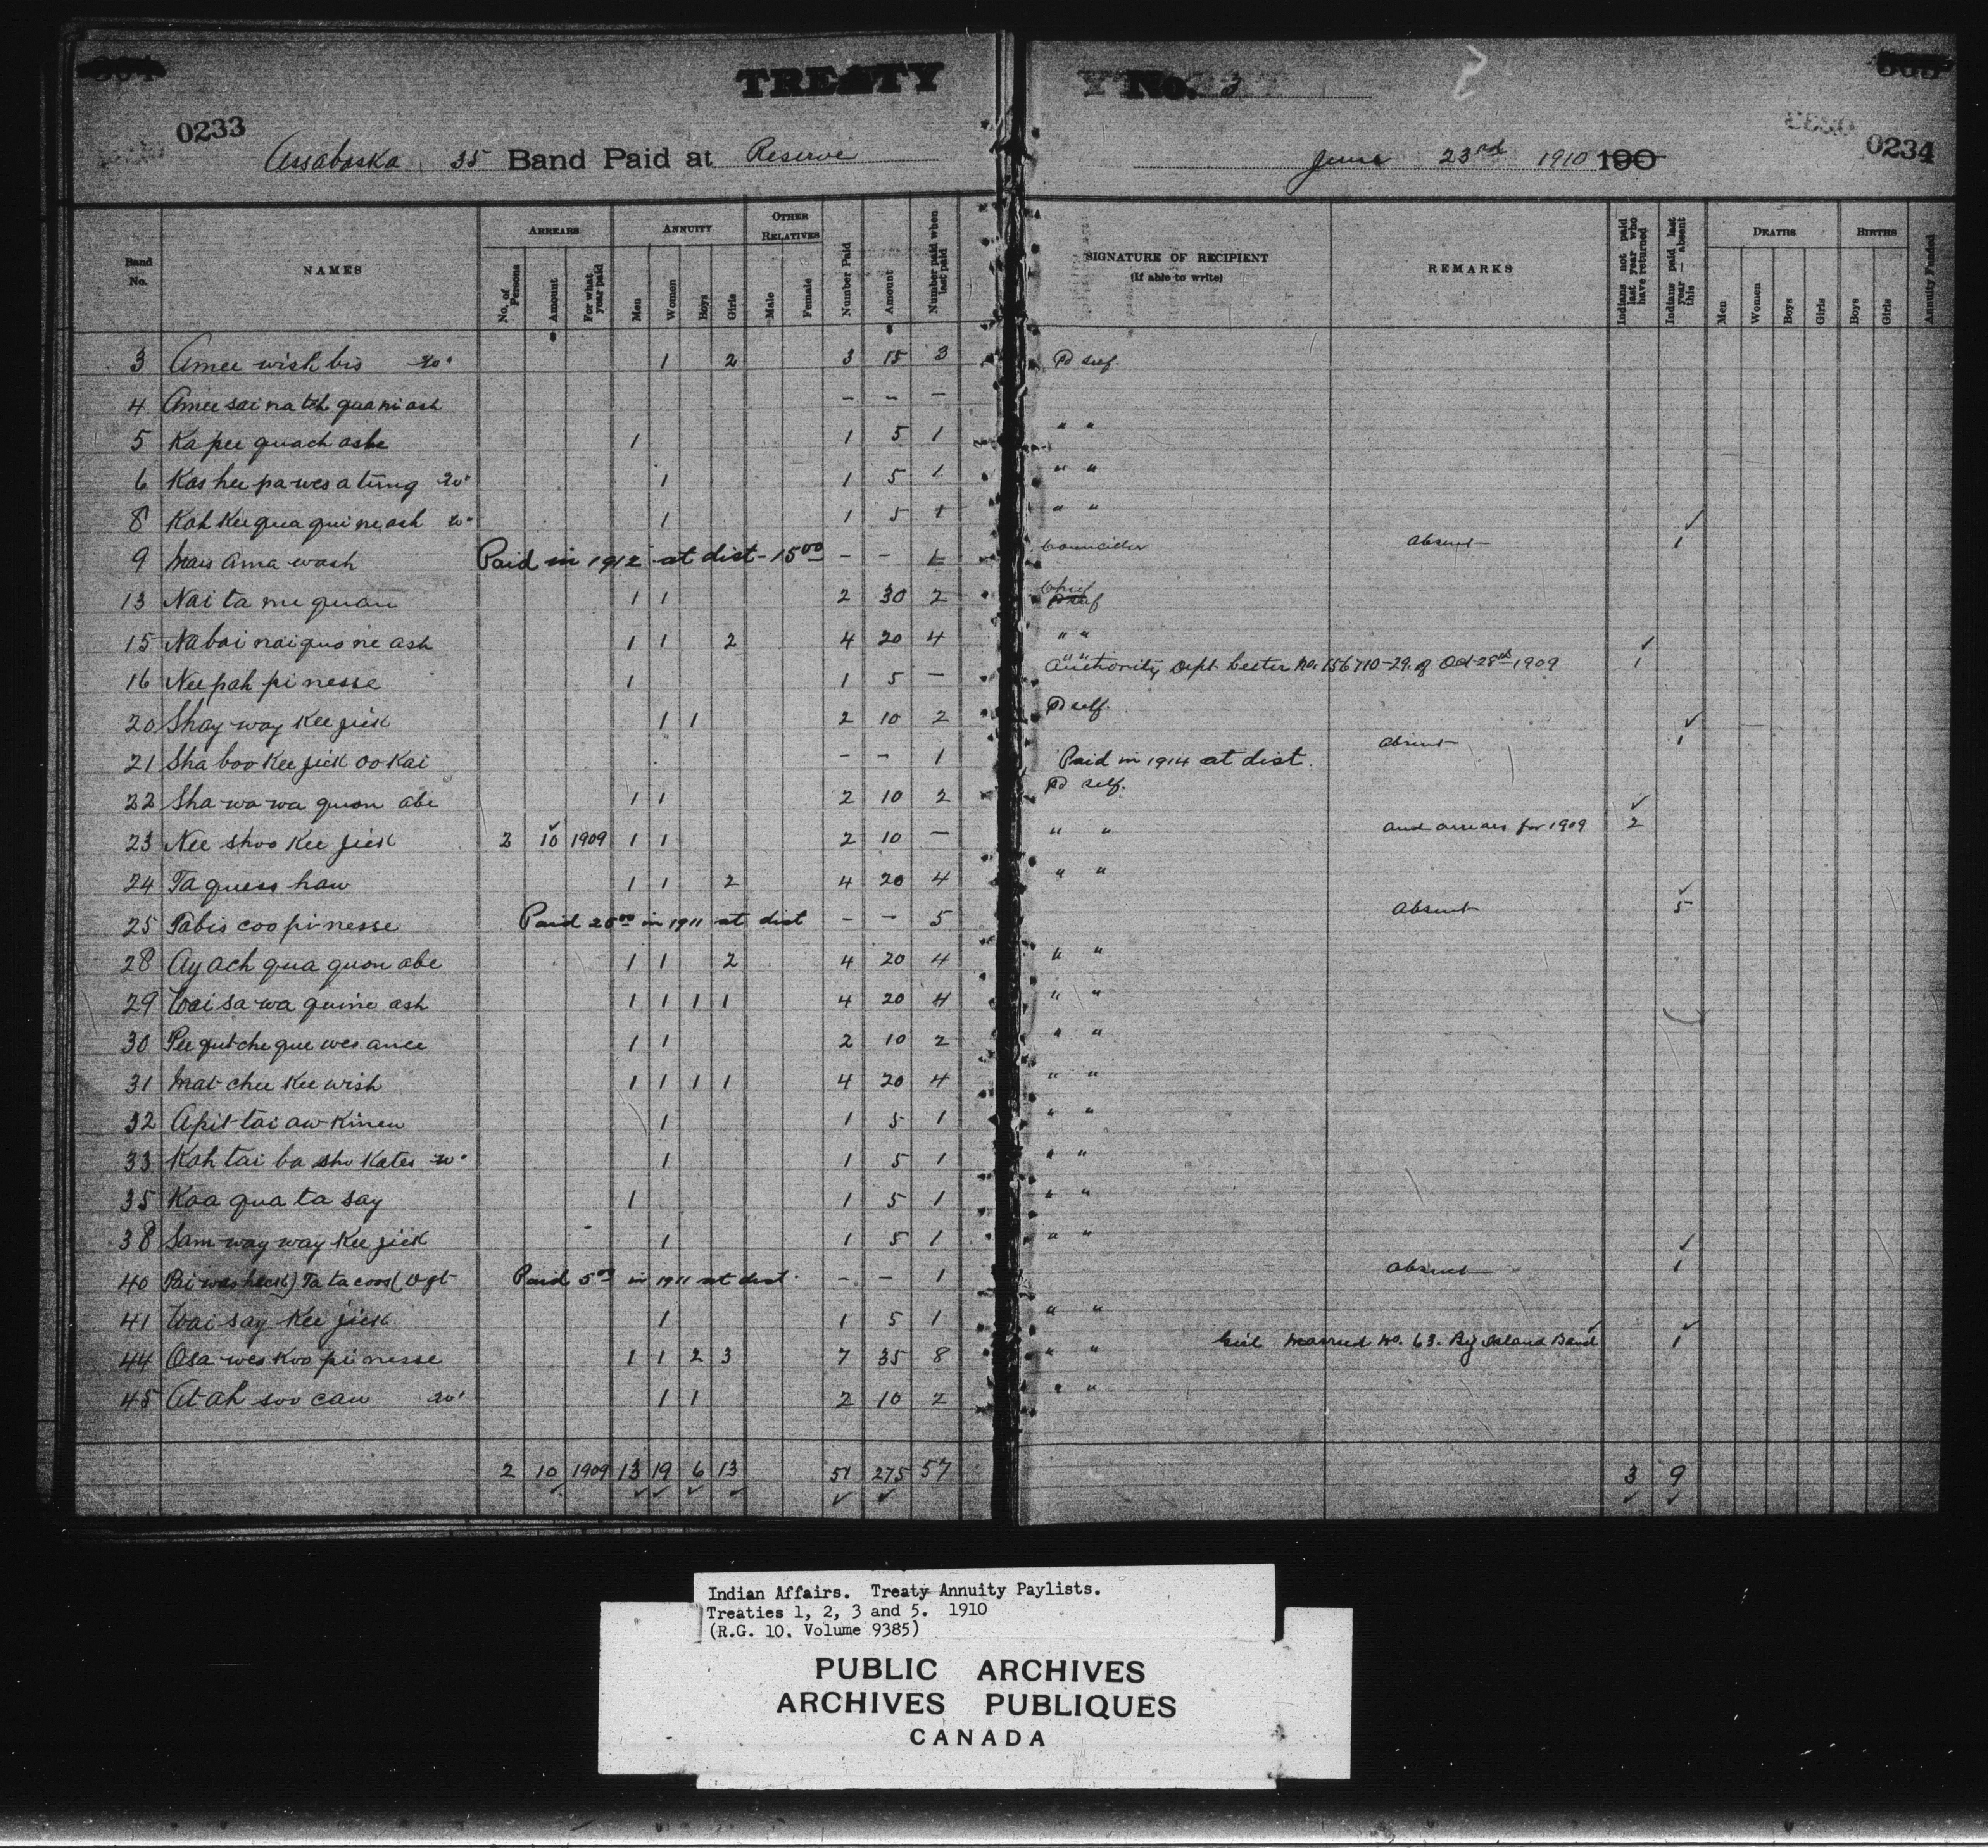 TREATY No. 3
0233
0234
Assabaska 35 Band Paid at Reserve June 23rd 1910 190
Band No. NAMES ARREARS No. of Persons Amount For what year paid ANNUITY Men Women Boys Girls OTHER RELATIVES Male Female Number Paid Amount Number paid when last paid SIGNATURE OF RECIPIENT (If able to write) REMARKS Indians not paid last year who have returned Indians paid last year — absent this DEATHS Men Women Boys Girls BIRTHS Boys Girls Annuity Funded
3 Amee wish bis 1 2 3 15 3 Pd self.
4 Amee sai na tch qua ni ash – – –
5 Ka pee quach ashe 1 1 5 1 " "
6 Kas hee pa wes a tung 1 1 5 1 " "
8 Kah Kee qua qui ne ash 1 1 5 1 " "
9 Mais ama wash Paid in 1912 at dist – 15 00 – – Councillor Absent 1
13 Nai ta mi quan 1 1 2 30 2 Chief
15 Na bai nai quo ne ash 1 1 2 4 20 4 " "
16 Nee pah pi nesse 1 1 5 – " " Authority Dept. Letter No. 156710-29. of Oct 28th 1909 1
20 Shay way Kee jick 1 1 2 10 2 Pd self.
21 Sha boo Kee jick oo Kai – – 1 Paid in 1914 at dist. absent 1
22 Sha wa wa quon abe 1 1 2 10 2 Pd self.
23 Nee shoo Kee jick 2 10 1909 1 1 2 10 – " " and arrears for 1909 2
24 Ta quess haw 1 1 2 4 20 4 " "
25 Tabis coo pi nesse Paid 25 00 in 1911 at dist – – 5 Absent 5
28 Ay ach qua quon abe 1 1 2 4 20 4 " "
29 Wai sa wa quine ash 1 1 1 1 4 20 4 " "
30 Pee qutche que wes ance 1 1 2 10 2 " "
31 Mat chee Kee wish 1 1 1 1 4 20 4 " "
32 Apit tai aw Kinew 1 1 5 1 " "
33 Kah tai ba sho Kates 1 1 5 1 " "
35 Kaa qua ta say 1 1 5 1 " "
38 Sam way way Kee jick 1 1 5 1 " "
40 Ta ta coos Paid 5 00 in 1911 at dist. – – 1 absent 1
41 Wai say Kee jick 1 1 5 1 " "
44 Osa wes Koo pi nesse 1 1 2 3 7 35 8 " " Girl Married No. 63. Big Island Band 1
45 At ah soo caw 1 1 2 10 2 " "
2 10 1909 13 19 6 13 51 275 57 3 9
Indian Affairs. Treaty Annuity Paylists.
Treaties 1, 2, 3 and 5. 1910
(R.G. 10. Volume 9385)
PUBLIC ARCHIVES
ARCHIVES PUBLIQUES
CANADA